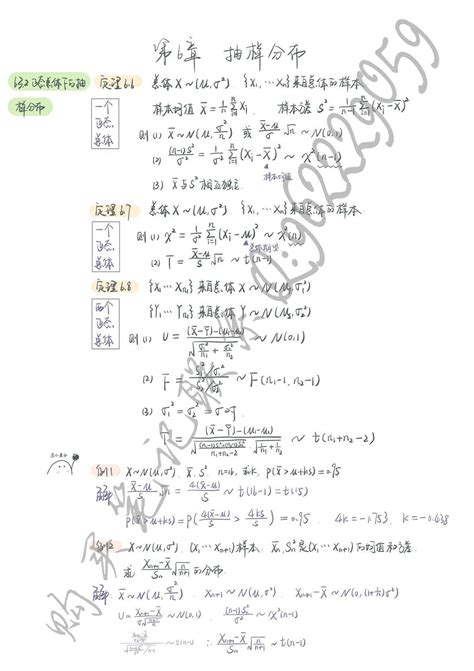 第6章 抽样分布
6.3.2 正态总体下的抽样分布
定理6.6 总体 X~N(μ,σ²) {X₁,…Xₙ}来自总体的样本
一个正态总体
样本均值 X̄ = 1/n Σᵢ₌₁ⁿ Xᵢ 样本方差 S² = 1/(n-1) Σᵢ₌₁ⁿ (Xᵢ-X̄)²
则 (1) X̄~N(μ, σ²/n) 或 (X̄-μ)/σ √n ~ N(0,1)
(2) (n-1)S²/σ² = 1/σ² Σᵢ₌₁ⁿ (Xᵢ-X̄)² ~ χ²(n-1)
样本均值
(3) X̄与S²相互独立.
定理6.7 总体 X~N(μ,σ²) {X₁,…Xₙ}来自总体的样本
一个正态总体
则 (1) χ² = 1/σ² Σᵢ₌₁ⁿ (Xᵢ-μ)² ~ χ²(n)
总体期望
(2) T = (X̄-μ)/S √n ~ t(n-1)
定理6.8 {X₁…Xₙ₁} 来自总体 X~N(μ₁,σ₁²)
两个正态总体
{Y₁…Yₙ₂} 来自总体 Y~N(μ₂,σ₂²)
则 (1) U = ((X̄-Ȳ)-(μ₁-μ₂))/√(σ₁²/n₁ + σ₂²/n₂) ~ N(0,1)
(2) F = (S₁²/σ₁²)/(S₂²/σ₂²) ~ F(n₁-1, n₂-1)
(3) σ₁² = σ₂² = σ² 时.
T = ((X̄-Ȳ)-(μ₁-μ₂))/(√(((n₁-1)S₁²+(n₂-1)S₂²)/(n₁+n₂-2)) √(1/n₁ + 1/n₂)) ~ t(n₁+n₂-2)
例1 X~N(μ,σ²), X̄, S² n=16, 求k, P(X̄>μ+kS)=0.95
解 (X̄-μ)/S √n = 4(X̄-μ)/S ~ t(16-1) = t(15)
P(X̄>μ+kS) = P(4(X̄-μ)/S > 4kS/S) = 0.95, 4k=-1.753, k=-0.438
例2 X~N(μ,σ²), (X₁…Xₙ₊₁)样本 X̄ₙ, Sₙ²是(X₁…Xₙ)的均值和方差
求 (Xₙ₊₁-X̄)/Sₙ √(n/(n+1)) 的分布.
解 X̄~N(μ, σ²/n) Xₙ₊₁~N(μ,σ²), Xₙ₊₁-X̄~N(0,(1+1/n)σ²)
U = (Xₙ₊₁-X̄)/(σ√((n+1)/n)) ~ N(0,1) (n-1)S²/σ² ~ χ²(n-1)
∴ (Xₙ₊₁-X̄)/Sₙ √(n/(n+1)) ~ t(n-1)